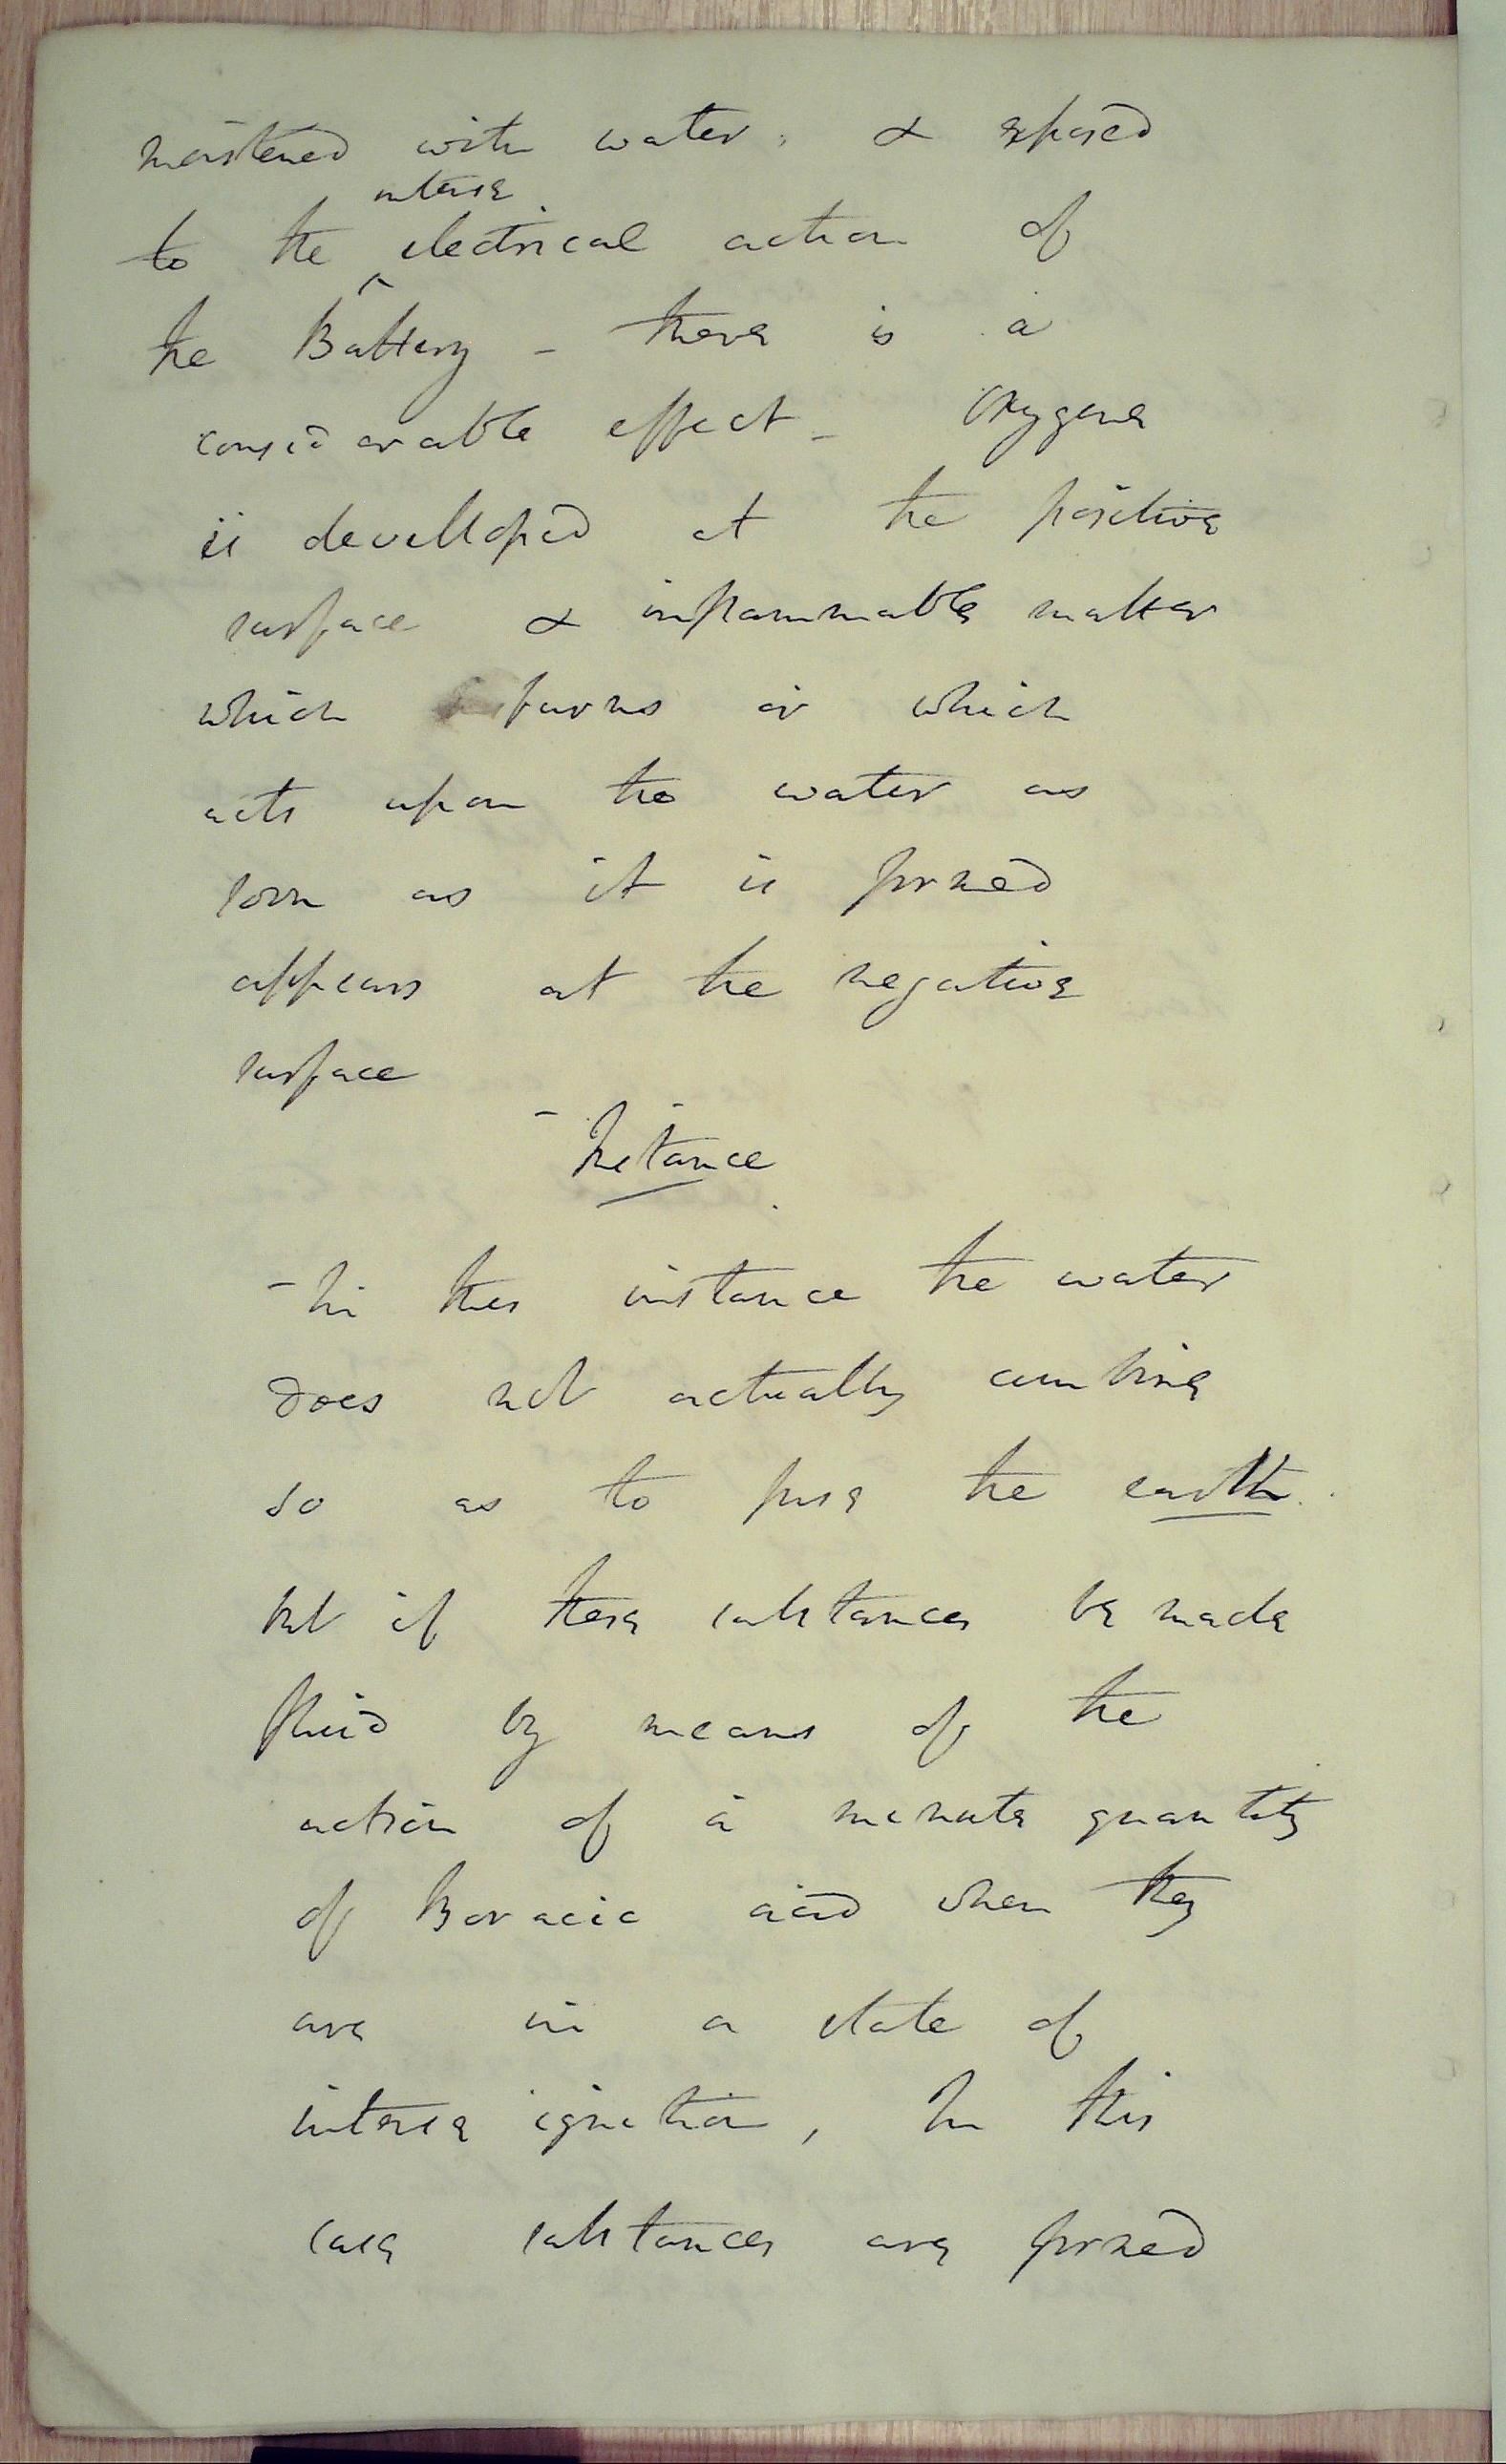 moistened with water, & exposed
intense
to the electrical action of
the Battery - there is a
considerable effect - Oxygene
is develloped at the positive
surface & inflammable matter
which burns or which
acts upon the water as
soon as it is formed
appears at the negative
surface
- Instance
- In this instance the water
does not actually combine
so as to fuse the earth.
but if these substances be made
fluid by means of the
action of a minute quantity
of Boracic acid when they
are in a state of
intense ignition, In this
case substances are formed